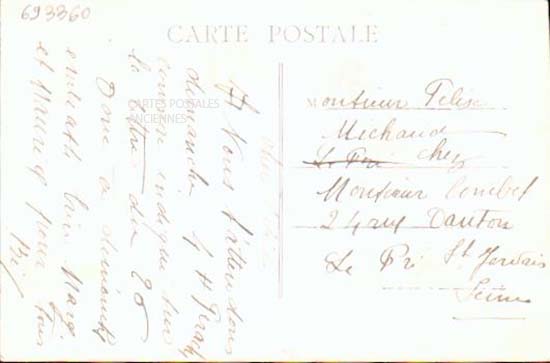 693360
CARTE POSTALE
CARTES POSTALES
ANCIENNES
Monsieur Felix
Michaud
Le Pré chez
Monsieur Combet
24 rue Danton
Le Pré St Gervais
Seine
Nous t'attendons
dimanche 4 H
comme indiqué sur
la lettre du 20
Donc à dimanche
Marg.
et Maurice pour tous